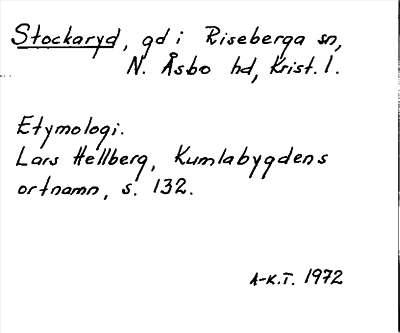 Stockaryd, gd i Riseberga sn,
N. Åsbo hd, Krist. l.
Etymologi.
Lars Hellberg, Kumlabygdens
ortnamn, s. 132.
A-K.T. 1972